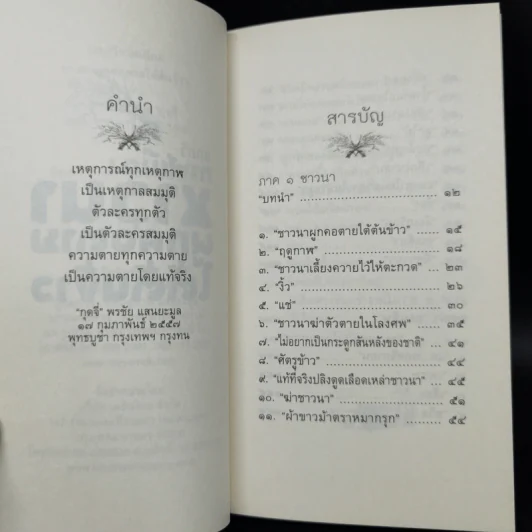 คำนำ
เหตุการณ์ทุกเหตุภาพ
เป็นเหตุกาลสมมุติ
ตัวละครทุกตัว
เป็นตัวละครสมมุติ
ความตายทุกความตาย
เป็นความตายโดยแท้จริง
"กุดจี่" พรชัย แสนยะมูล
๑๗ กุมภาพันธ์ ๒๕๕๗
พุทธบูชา กรุงเทพฯ กรุงทน
สารบัญ
ภาค ๑ ชาวนา
"บทนำ" ๑๒
๑. "ชาวนาผูกคอตายใต้ต้นข้าว" ๑๕
๒. "ฤดูกาพ" ๑๘
๓. "ชาวนาเลี้ยงควายไว้ให้ตะกวด" ๒๓
๔. "งิ้ว" ๒๖
๕. "แช่" ๓๐
๖. "ชาวนาฆ่าตัวตายในโลงศพ" ๓๕
๗. "ไม่อยากเป็นกระดูกสันหลังของชาติ" ๔๑
๘. "ศัตรูข้าว" ๔๔
๙. "แท้ที่จริงปลิงดูดเลือดเหล่าชาวนา" ๔๕
๑๐. "ฆ่าชาวนา" ๕๑
๑๑. "ผ้าขาวม้าตราหมากรุก" ๕๔